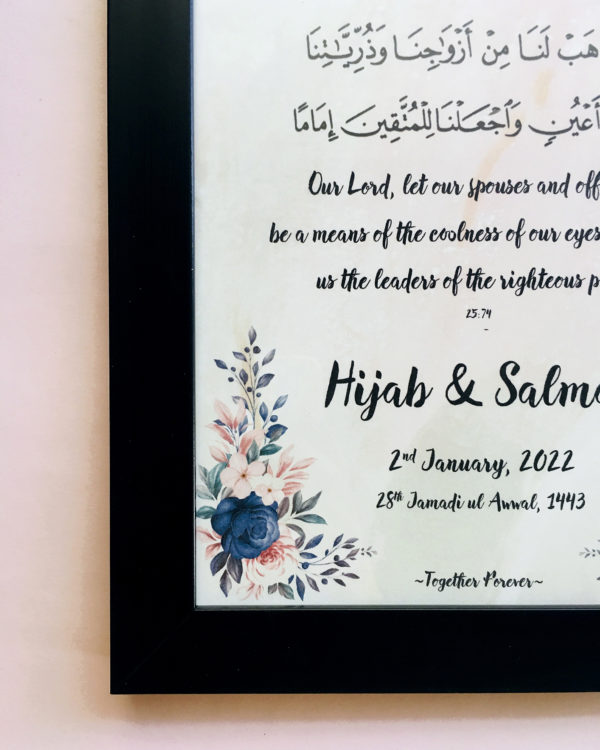 هَبْ لَنَا مِنْ أَزْوَٰجِنَا وَذُرِّيَّـٰتِنَا
أَعْيُنٍ وَٱجْعَلْنَا لِلْمُتَّقِينَ إِمَامًا
Our Lord, let our spouses and off
be a means of the coolness of our eyes
us the leaders of the righteous p
25:74
Hijab & Salm
2nd January, 2022
28th Jamadi ul Awwal, 1443
~Together Forever~